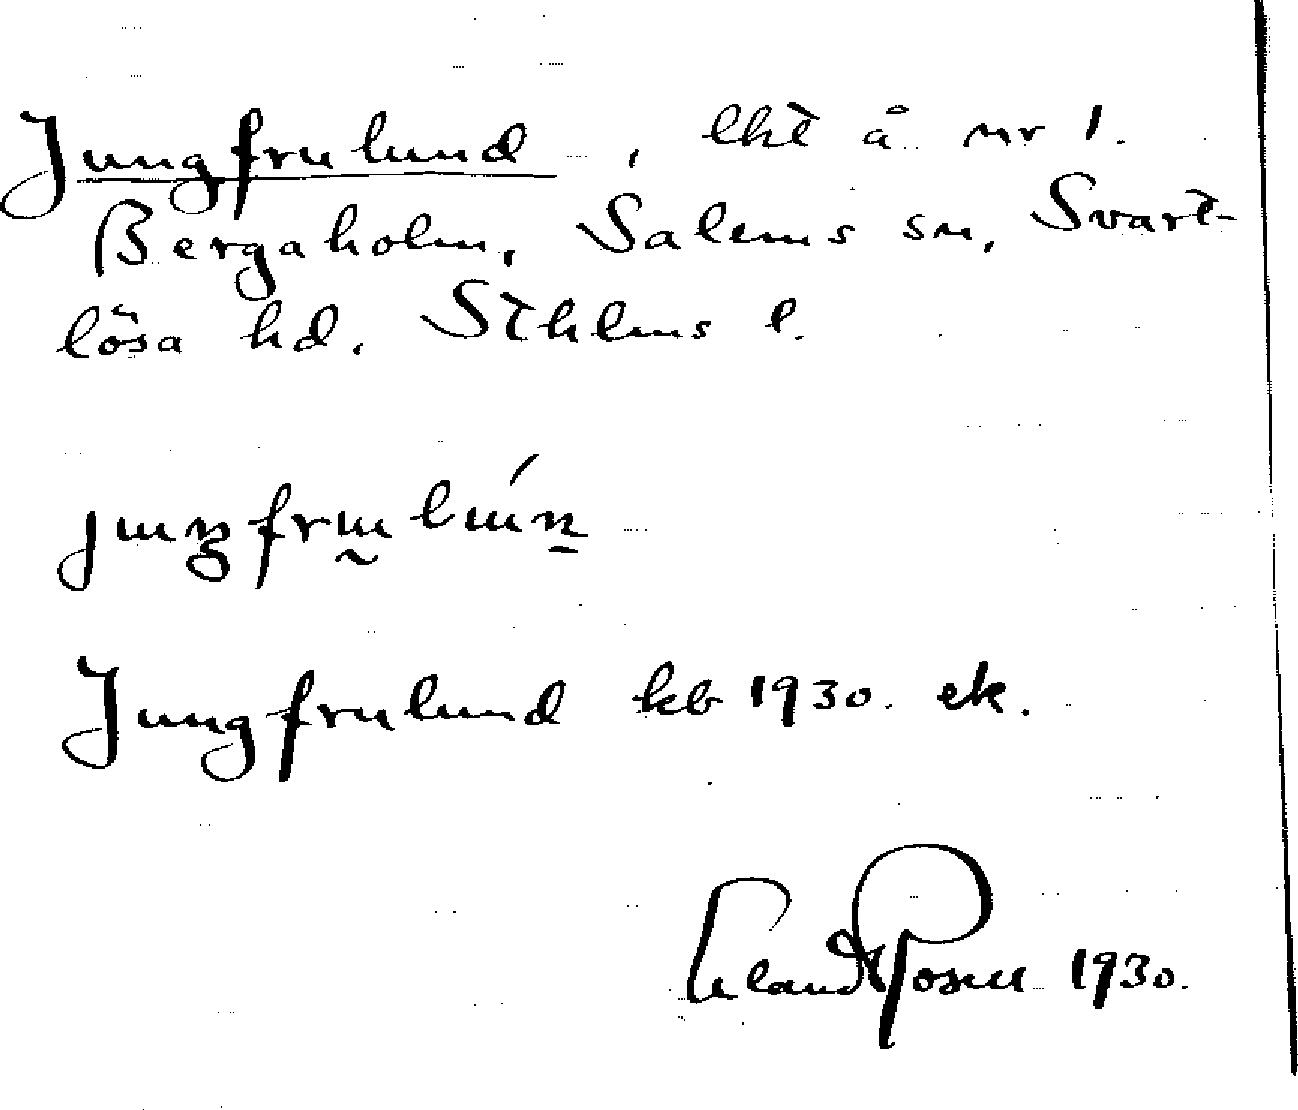 Jungfrulund, lht å nr 1.
Bergaholm, Salems sn, Svart-
lösa hd. Sthlms l.
Jungfrulund kb 1930. ek.
Erland Rosell 1930.